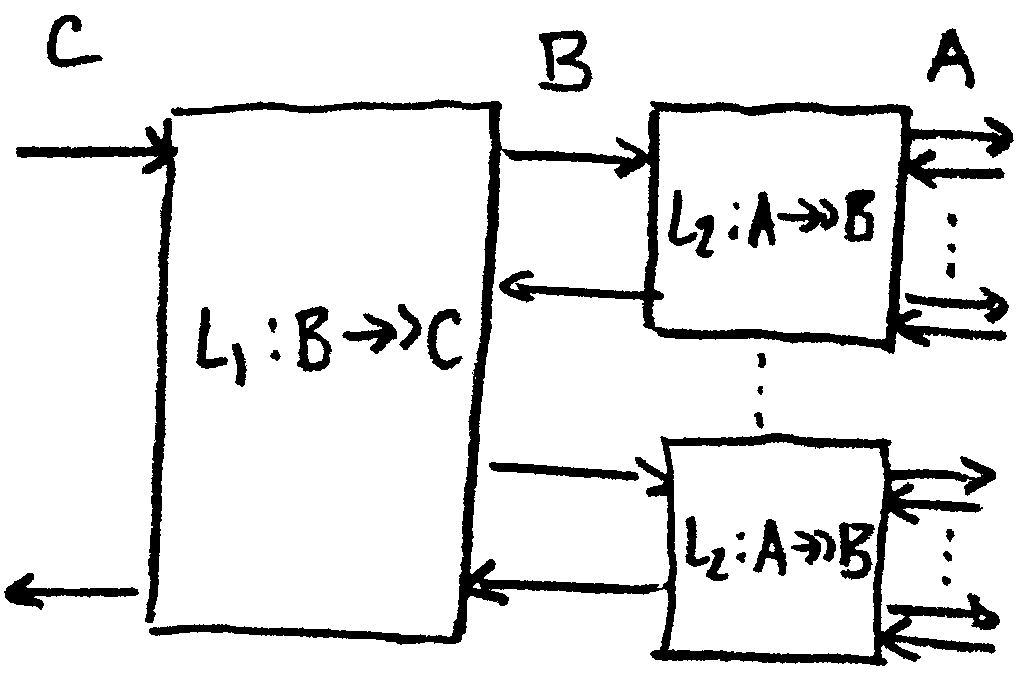 C B A
L₁ : B ↠ C
L₂ : A ↠ B
L₂ : A ↠ B